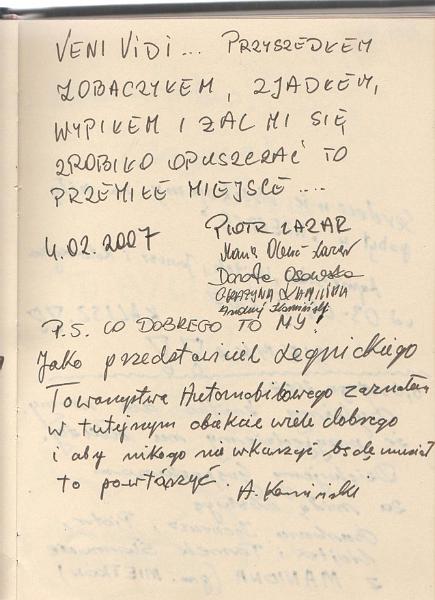 VENI VIDI... PRZYSZEDŁEM
ZOBACZYŁEM, ZJADŁEM,
WYPIŁEM I ŻAL MI SIĘ
ZROBIŁO OPUSZCZAĆ TO
PRZEMIŁE MIEJSCE ....
4.02.2007
PIOTR ŁAZAR
Maria
Dorota Osowska
GRAŻYNA KAMIŃSKA
Andrzej Kamiński
P.S. CO DOBREGO TO MY!
Jako przedstawiciel Legnickiego
Towarzystwa Automobilowego zaznałem
w tutejszym obiekcie wiele dobrego
i aby nikogo nie wkurzyć będę musiał
to powtórzyć. A. Kamiński